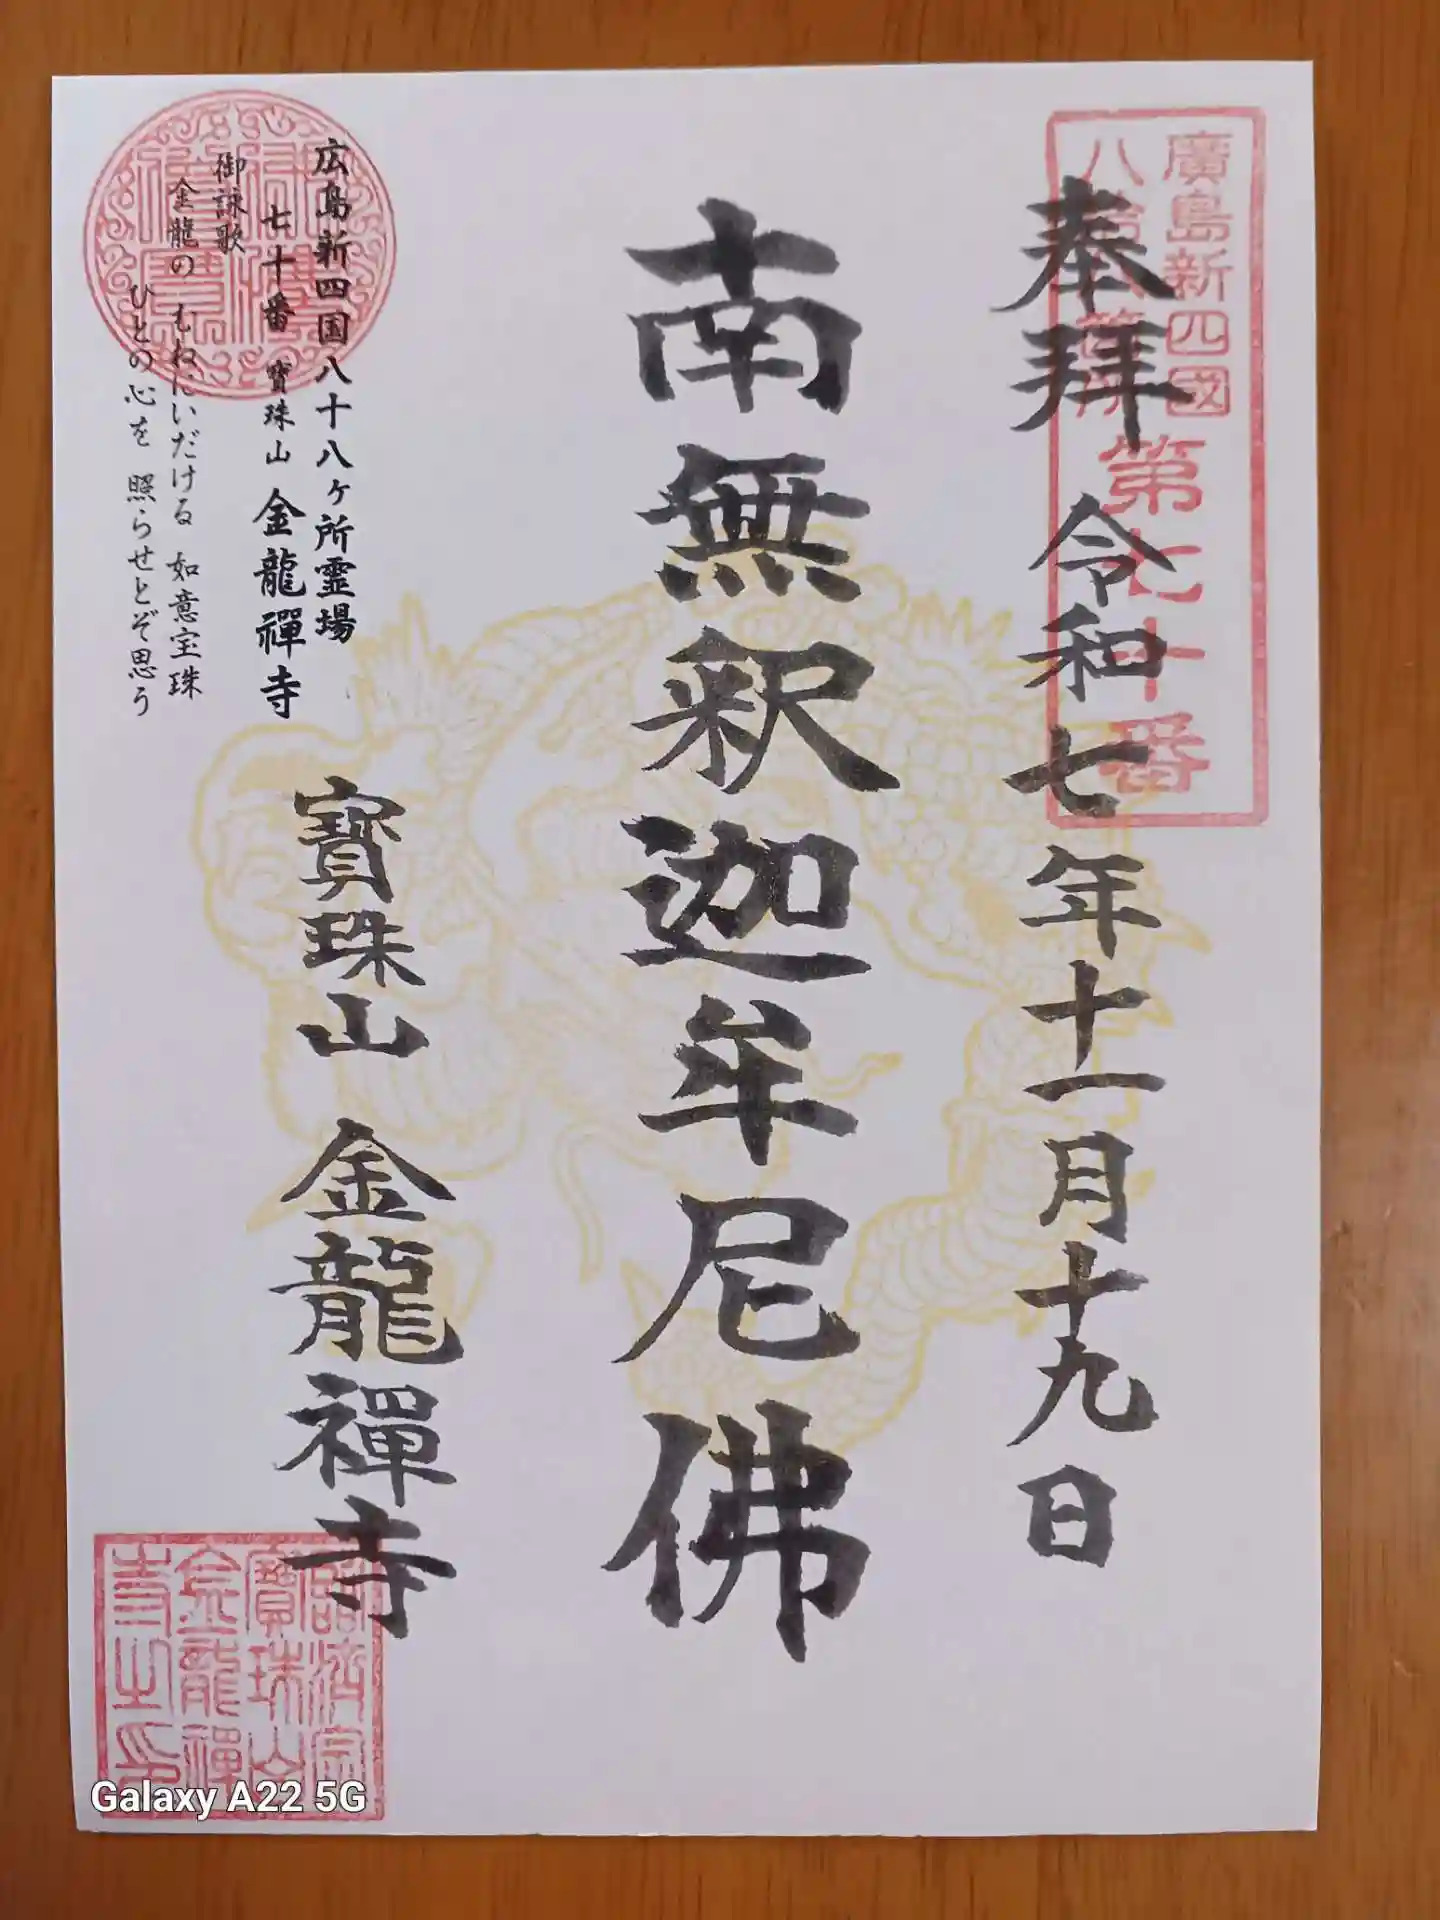 廣島新四國
八拾八箇所
第七十番
奉拜 令和七年十一月十九日
南無釈迦牟尼佛
寶珠山 金龍禪寺
広島新四国八十八ヶ所霊場
七十番 寶珠山 金龍禪寺
御詠歌
金龍の むねにいだける 如意宝珠
ひとの心を 照らせとぞ思う
臨済宗
寶珠山
金龍禪
寺之印
Galaxy A22 5G